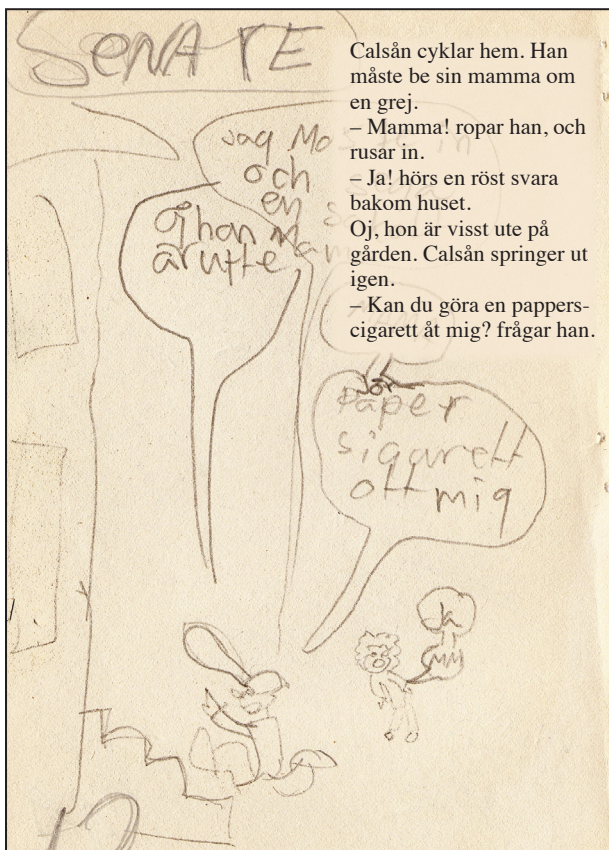 SENARE
Calsån cyklar hem. Han
måste be sin mamma om
en grej.
– Mamma! ropar han, och
rusar in.
– Ja! hörs en röst svara
bakom huset.
Oj, hon är visst ute på
gården. Calsån springer ut
igen.
– Kan du göra en pappers-
cigarett åt mig? frågar han.
jag
in
och
en
oj han
är utte
jör
paper
sigarett
ott mig
Ja
MM